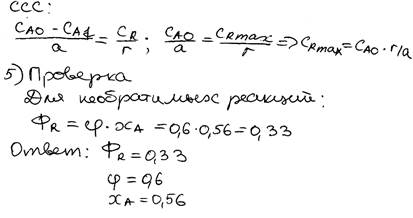 ССС:
(C_A0 - C_Af)/a = C_R/r ; C_A0/a = C_Rmax/r => C_Rmax = C_A0 · r/a
5) Проверка
Для необратимых реакций:
Ф_R = φ · x_A = 0,6 · 0,56 = 0,33
Ответ: Ф_R = 0,33
φ = 0,6
x_A = 0,56